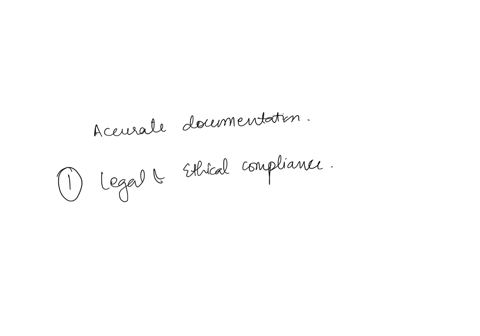 Accurate documentation.
① Legal & Ethical compliance.